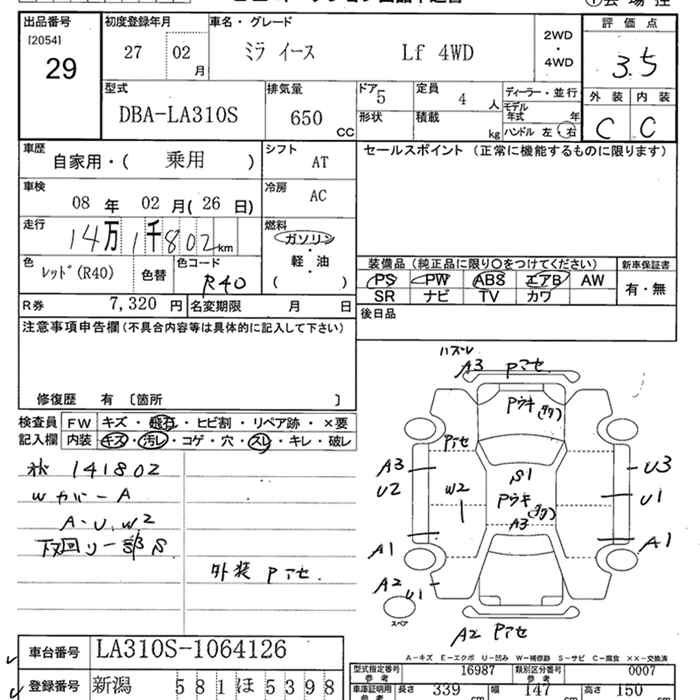 出品番号 初度登録年月 車名・グレード 評価点
[2054] 29
27 02 月 ミラ イース Lf 4WD 2WD ・ 4WD 3.5
型式 排気量 ドア 定員 ディーラー・並行 外装 内装
DBA-LA310S 650 CC 5 4 人 モデル年式 年 C C
形状 積載 kg ハンドル 左・右
車歴 シフト セールスポイント (正常に機能するものに限ります)
自家用・( 乗用 ) AT
車検 冷房
08 年 02 月 ( 26 日) AC
走行 燃料
14万1千802km ガソリン
・
軽・油
( )
色 カラーコード
レッド(R40) 色替 R40
装備品 (純正品に限り〇をつけてください) 新車保証書
PS PW ABS エアB AW 有・無
SR ナビ TV カワ
R券 7,320 円 名変期限 月 日
後日品
注意事項申告欄(不具合内容等は具体的に記入して下さい)
修復歴 有 〔箇所 〕
検査員 FW キズ・飛石・ヒビ割・リペア跡・×要
記入欄 内装 キズ・汚レ・コゲ・穴・スレ・キレ・破レ
141802
Wカバー A
A・U、W2
下回リ一部S
外装 Pアセ
ハズレ
A3 Pアセ
Pウキ
Pアセ
A3 U3
U2 W2 S1 U1
Pウキ
A3
A1 A1
A2 U1
スペア
A2 Pアセ
A-キズ E-エクボ U-凹み W-補修跡 S-サビ C-腐食 XX-交換済
車台番号 LA310S-1064126
型式指定番号 参考 16987 類別区分番号 参考 0007
登録番号 新潟 581 ほ 5398
車庫証明用 参考 長さ 339 cm 幅 147 cm 高さ 150 cm